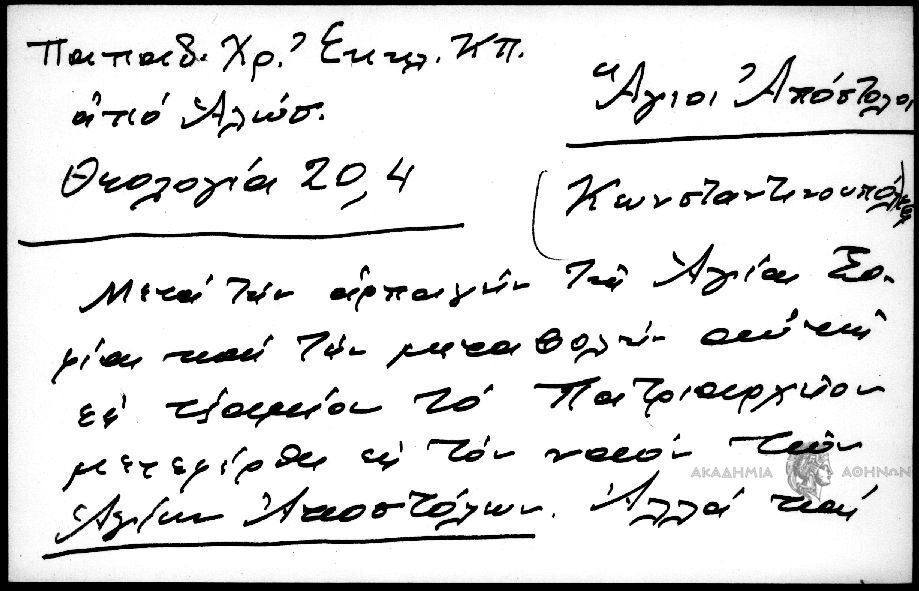 Παπαδ. Χρ. Ἐκκλ. ΚΠ.
ἀπό Ἁλώσ.
Θεολογία 20, 4
Ἅγιοι Ἀπόστολοι
Κωνσταντινουπόλεως
Μετά τήν ἁρπαγήν τῆς Ἁγίας Σο-
φίας καί τήν μεταβολήν αὐτῆς
εἰς τζαμίον τό Πατριαρχεῖον
μετεφέρθη εἰς τόν ναόν τῶν
Ἁγίων Ἀποστόλων. Ἀλλά καί
ΑΚΑΔΗΜΙΑ ΑΘΗΝΩΝ